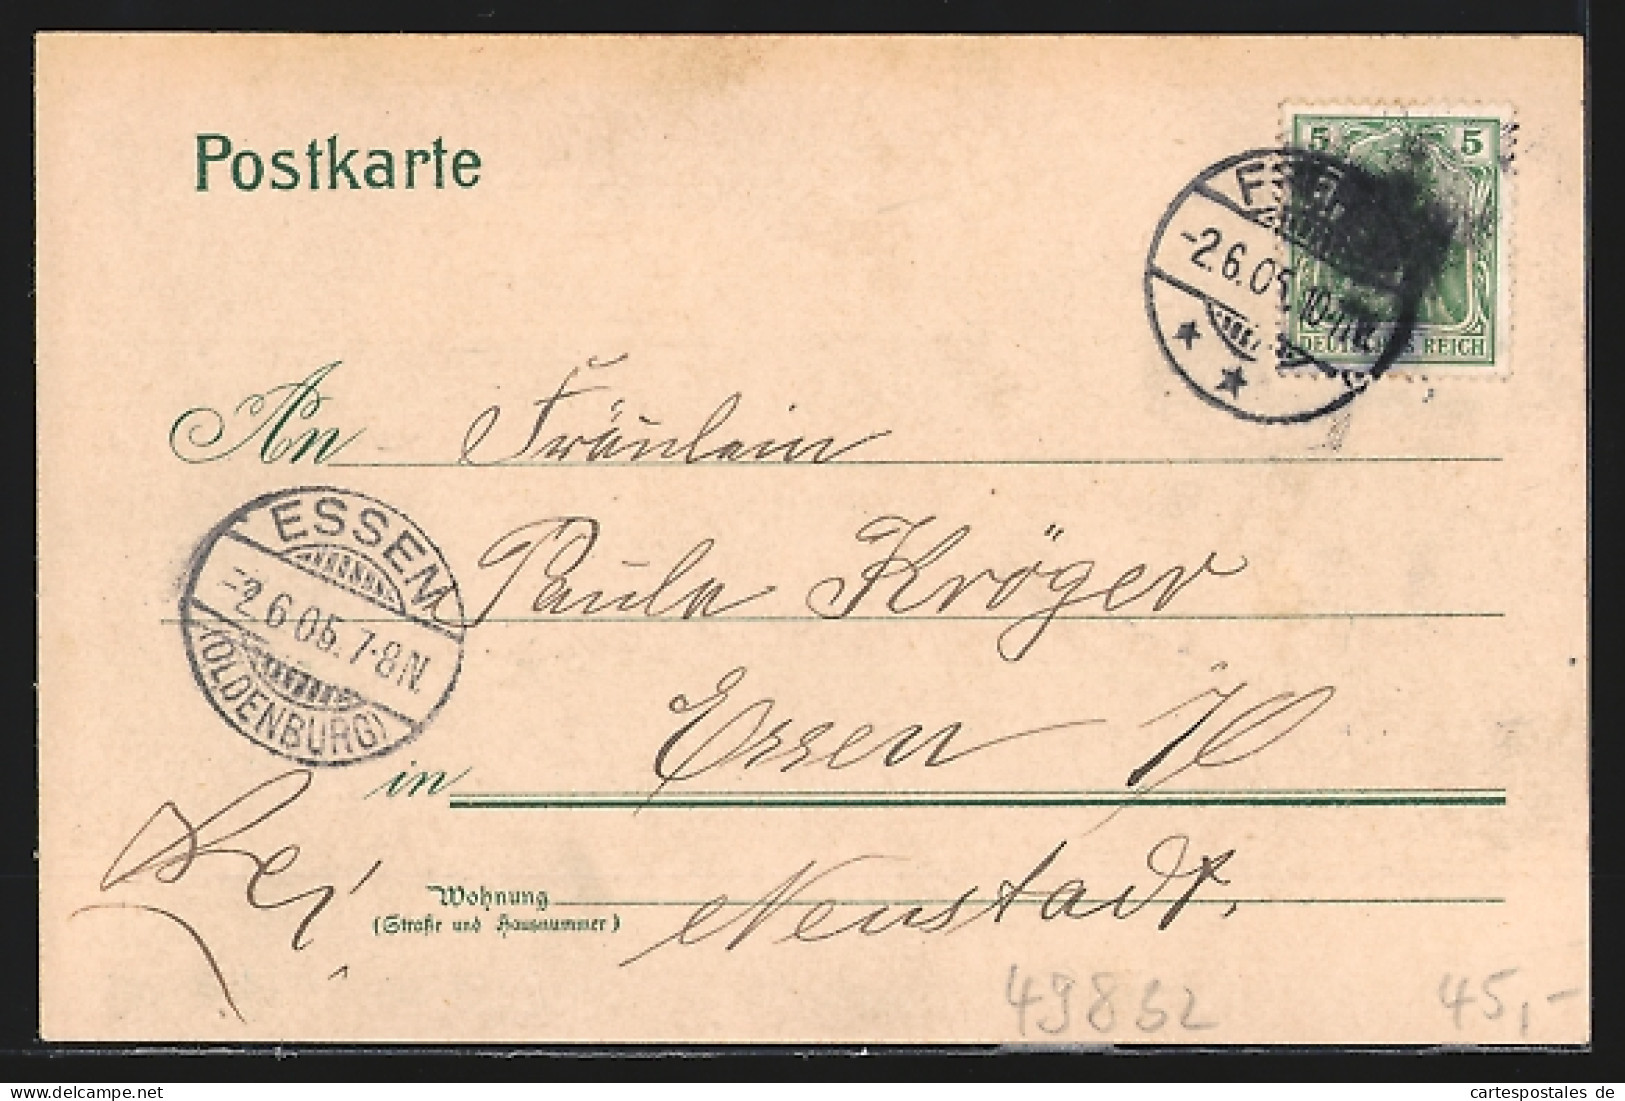 Postkarte
5 5
-2.6.05.10-11
DEUTSCHES REICH
An Fräulein
ESSEN
-2.6.05.7-8N.
(OLDENBURG)
Paula Kröger
in Essen i/O
Bei
Wohnung
(Straße und Hausnummer)
Neustadt.
49832
45,-
cartespostales de